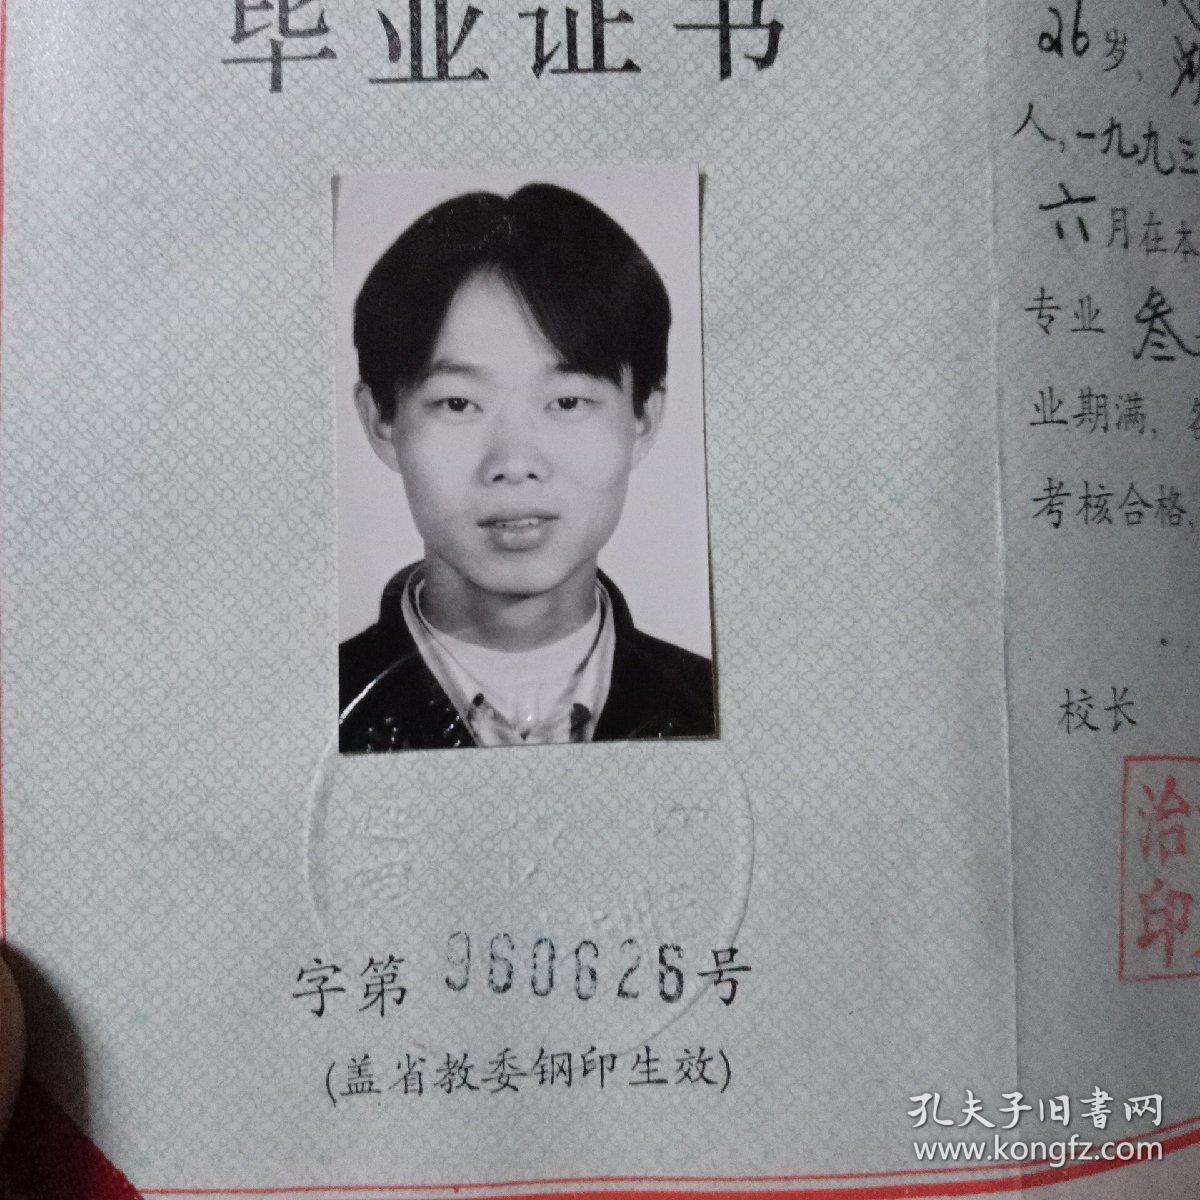 毕业证书
字第960626号
(盖省教委钢印生效)
26岁、湖
人,一九九三
六月在本
专业 叁
业期满,
考核合格,
校长
治
印
孔夫子旧書网
www.kongfz.com